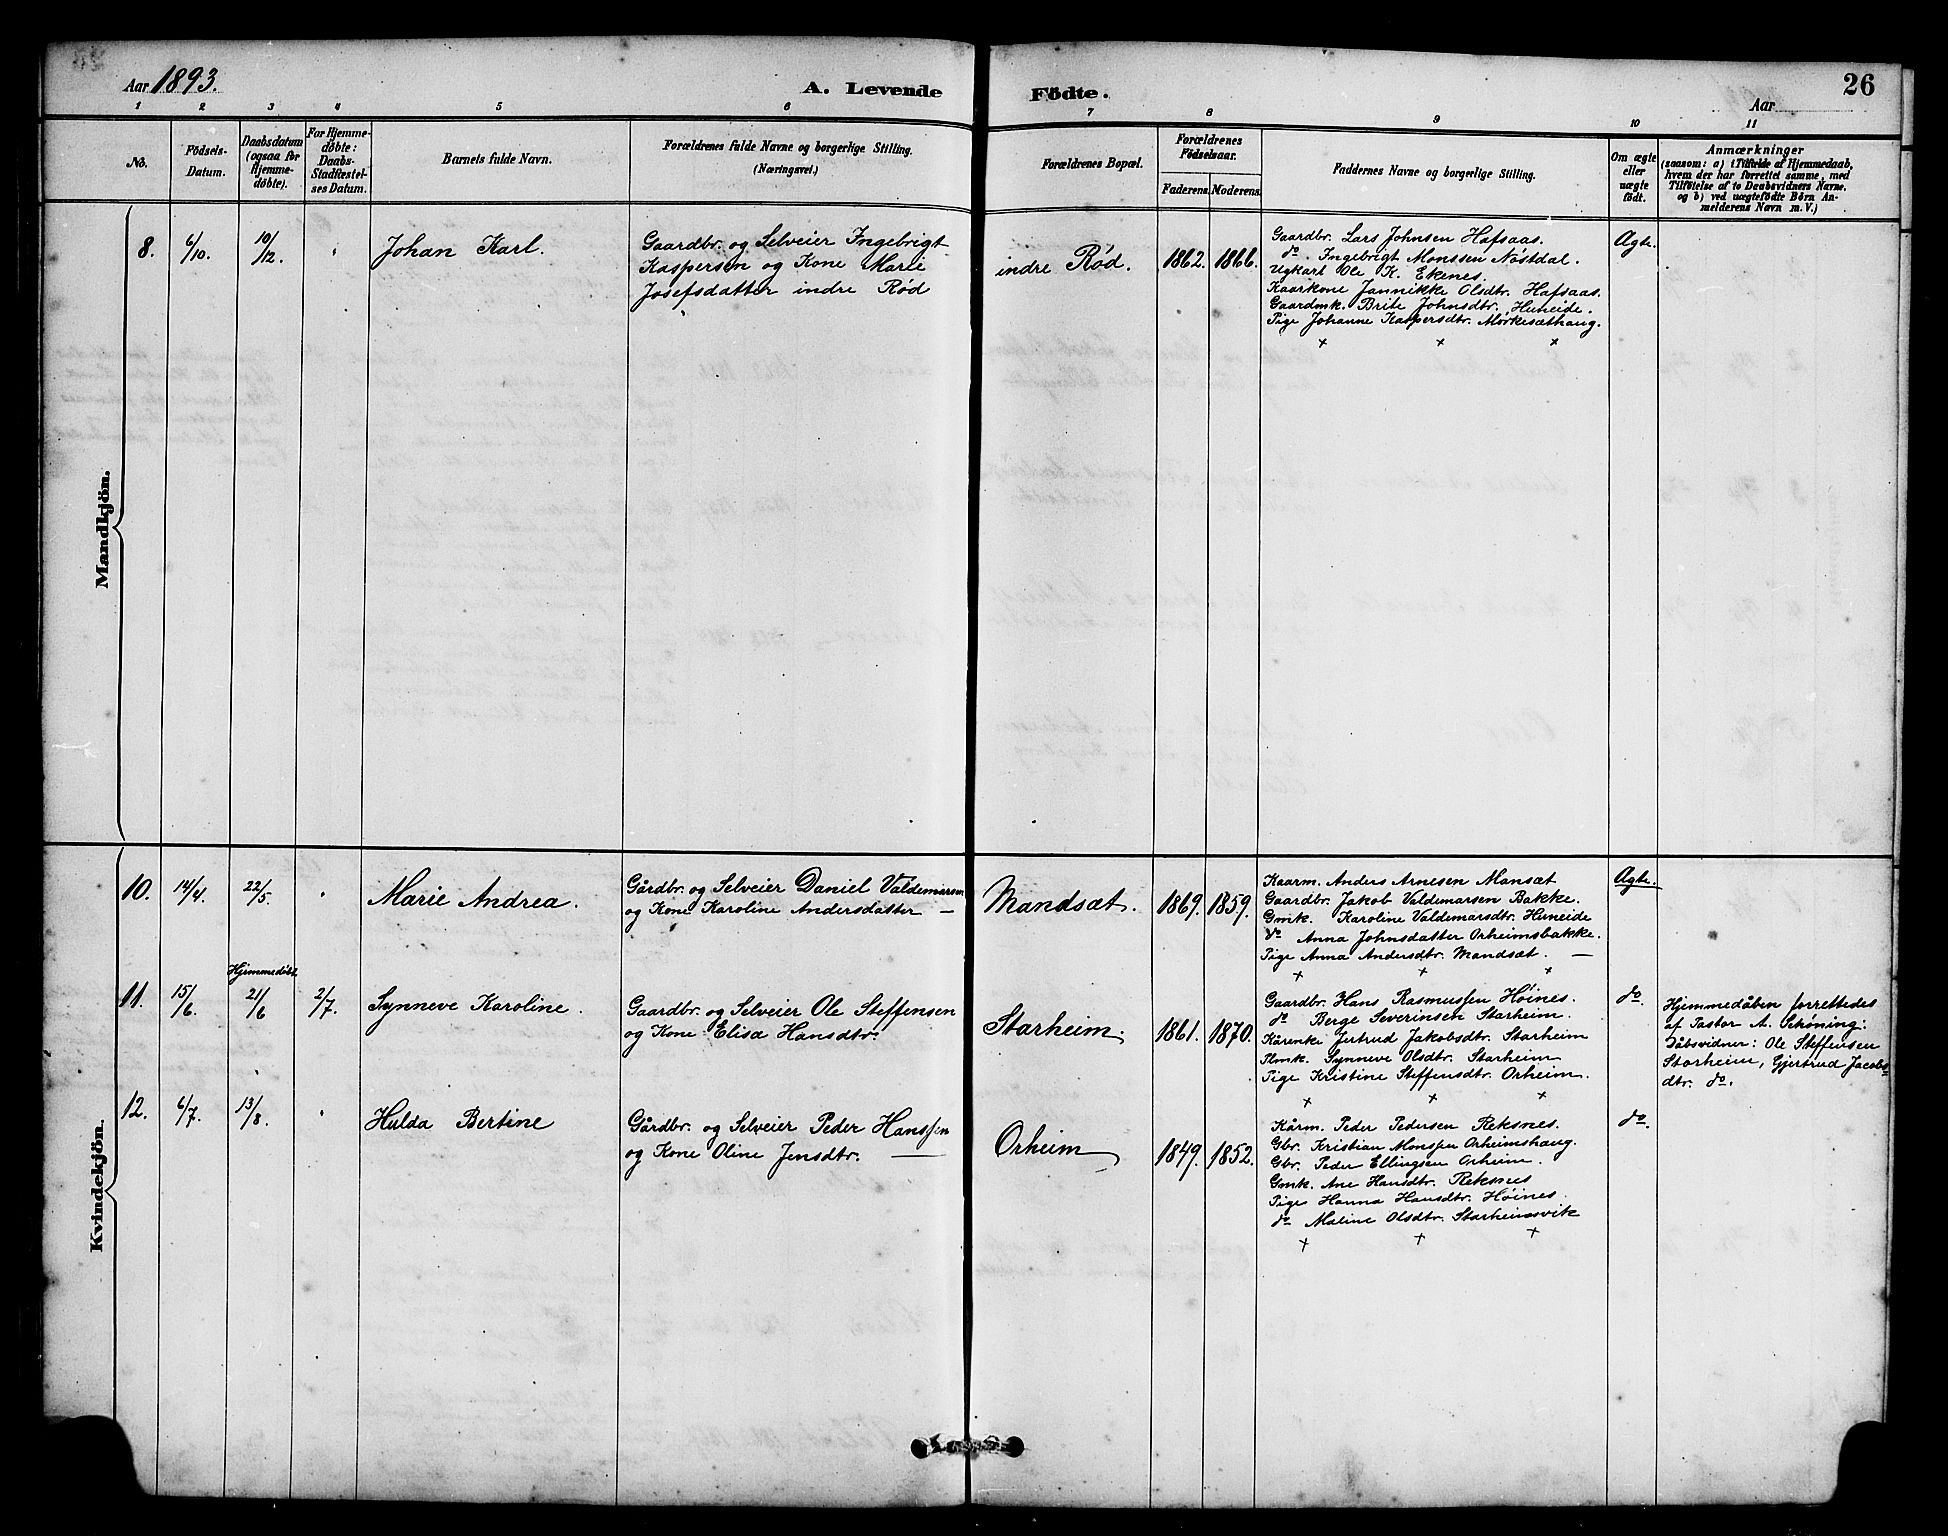 Aar 1893.
A. Levende Födte.
26
Aar
1 2 3 4 5 6 7 8 9 10 11
No.
Födsels-Datum.
Daabsdatum (ogsaa for Hjemmedöbte).
For Hjemmedöbte: Daabs-Stadfæstelses Datum.
Barnets fulde Navn.
Forældrenes fulde Navne og borgerlige Stilling. (Næringsvei.)
Forældrenes Bopæl.
Forældrenes Födselsaar.
Faderens. Moderens.
Faddernes Navne og borgerlige Stilling.
Om ægte eller uægte födt.
Anmærkninger
(saasom: a) i Tilfælde af Hjemmedaab,
hvem der har forrettet samme, med
Tilföielse af to Daabsvidners Navne,
og b) ved uægtefödte Börn An-
melderens Navn m. V.)
Mandkjön.
8. 6/10. 10/12. " Johan Karl.
Gaardbr. og Selveier Ingebrigt
Kaspersen og Kone Marie
Josefsdatter indre Rød
indre Rød. 1862. 1866.
Gaardbr. Lars Johnsen Hafsaas.
do. Ingebrigt Monssen Nøstdal.
Ugkarl Ole K. Ekenes.
Kaarkone Jannikke Olsdtr. Hafsaas.
Gaardmk. Brite Johnsdtr. Huneide.
Pige Johanne Kaspersdtr. Mørkesæthaug.
+ + +
Ægte.
Kvindekjön.
10. 14/4. 22/5. " Marie Andrea.
Gårdbr. og Selveier Daniel Valdemarsen
og Kone Karoline Andersdatter —
Mandsæt. 1869. 1859.
Kaarm. Anders Arnesen Mansæt
Gaardbr. Jakob Valdemarsen Bakke.
Gmk. Karoline Valdemarsdtr. Huneide
do Anna Johnsdatter Orheimsbakke.
Pige Anna Andersdtr. Mandsæt. —
+ + +
Ægte.
Hjemmedöbt
11. 15/6. 21/6 2/7. Synneve Karoline.
Gaardbr. og Selveier Ole Steffensen
og Kone Elisa Hansdtr.
Starheim. 1861. 1870.
Gaardbr. Hans Rasmussen Høines.
do Berge Severinsen Starheim.
Kårenke Jertrud Jakobsdtr. Starheim
Plmk. Synneve Olsdtr. Starheim
Pige Kristine Steffensdtr. Orheim.
+ + +
do.
Hjemmedåben forrettedes
af Pastor A. Schøning:
Dåbsvidner: Ole Steffensen
Starheim, Gjertrud Jacobs
dtr. do.
12. 6/7. 13/8. " Hulda Bertine
Gårdbr. og Selveier Peder Hanssen
og Kone Oline Jensdtr. —
Orheim 1849. 1852.
Kårm. Peder Pedersen Reksnes.
Gbr. Kristian Monssen Orheimshaug.
Gbr. Peder Ellingsen Orheim.
Gmk. Ane Hansdtr. Reksnes
Pige Hanna Hansdtr. Høines.
do Maline Olsdtr. Starheimsvik
+ + +
do.